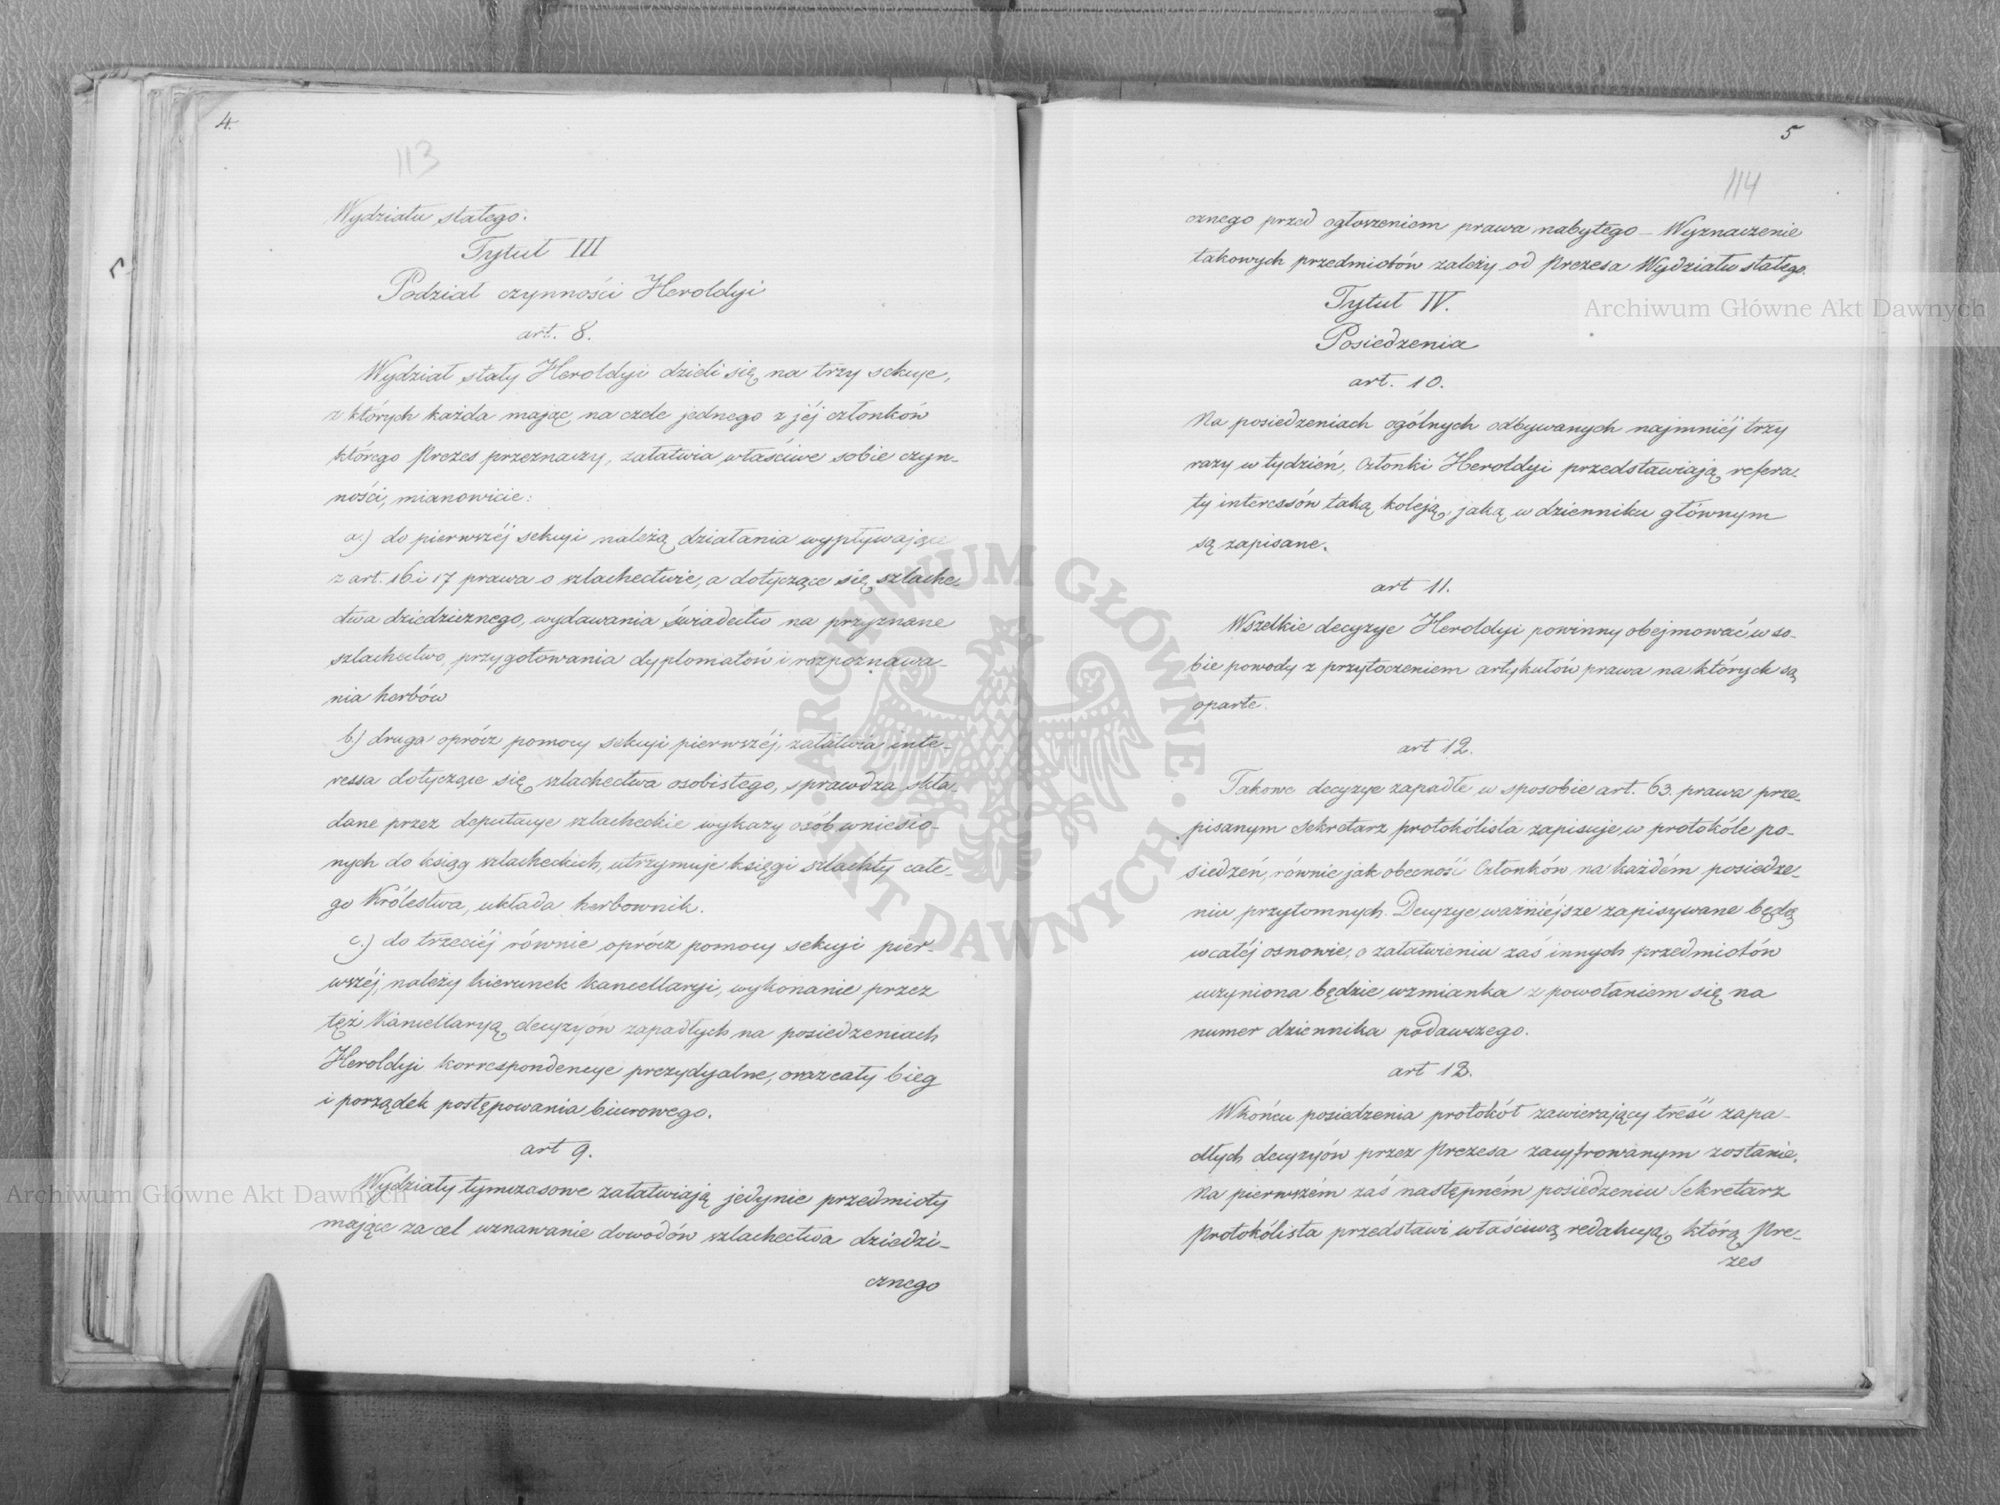 4.
113
Wydziału stałego.
Tytuł III
Podział czynności Heroldyi
art. 8.
Wydział stały Heroldyi dzieli się na trzy sekcye,
z których każda mając na czele jednego z jéj członków
którego Prezes przeznaczy, załatwia właściwe sobie czyn-
ności, mianowicie:
a.) do pierwszéj sekcyi należą działania wypływające
z art. 16 i 17 prawa o szlachectwie, a dotyczące się szlache-
ctwa dziedzicznego, wydawania świadectw na przyznane
szlachectwo, przygotowania dyplomatów i rozpoznawa-
nia herbów
b.) druga oprócz pomocy sekcyi pierwszéj, załatwia inte-
ressa dotyczące się szlachectwa osobistego, sprawdza skła-
dane przez deputacye szlacheckie wykazy osób wniesio-
nych do ksiąg szlacheckich, utrzymuje księgi szlachty całe-
go Królestwa, układa herbownik.
c.) do trzeciéj równie oprócz pomocy sekcyi pier-
wszéj, należy kierunek Kancellaryi, wykonanie przez
tęż Kancellaryą decyzyów zapadłych na posiedzeniach
Heroldyi korrespondencye prezydyalne, oraz cały bieg
i porządek postępowania biurowego.
art 9.
Wydziały tymczasowe załatwiają jedynie przedmioty
mające za cel uznawanie dowodów szlachectwa dziedzi-
cznego
5
114
cznego przed ogłoszeniem prawa nabytego – Wyznaczenie
takowych przedmiotów zależy od Prezesa Wydziału stałego.
Tytuł IV.
Posiedzenia
art. 10.
Na posiedzeniach ogólnych odbywanych najmniéj trzy
razy w tydzień, Członki Heroldyi przedstawiają refera-
ty interessów taką koleją, jaką w dzienniku głównym
są zapisane.
art 11.
Wszelkie decyzye Heroldyi powinny obejmować w so-
bie powody z przytoczeniem artykułów prawa na których są
oparte.
art 12.
Takowe decyzye zapadłe w sposobie art. 63. prawa prze-
pisanym Sekretarz protokólista zapisuje w protokóle po-
siedzeń, równie jak obecność Członków na każdém posiedze-
niu przytomnych. Decyzye ważniejsze zapisywane będą
w całéj osnowie, o załatwieniu zaś innych przedmiotów
uczyniona będzie wzmianka z powołaniem się na
numer dziennika podawczego.
art 13.
W końcu posiedzenia protokół zawierający treść zapa-
dłych decyzyów przez Prezesa zacyfrowanym zostanie.
Na pierwszém zaś następném posiedzeniu Sekretarz
Protokólista przedstawi właściwą redakcyą, którą Pre-
zes
Archiwum Główne Akt Dawnych
Archiwum Główne Akt Dawnych
ARCHIWUM GŁÓWNE · AKT DAWNYCH ·